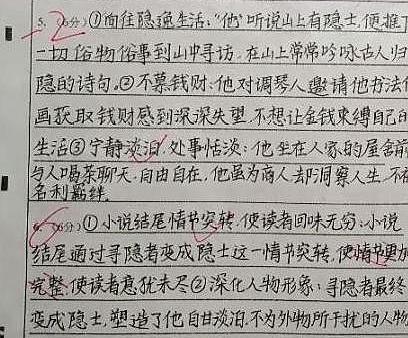 5. (6分) ①向往隐逸生活:"他"听说山上有隐士,便推了
一切俗物俗事到山中寻访,在山上常常吟咏古人归
隐的诗句。②不慕钱财:他对调琴人邀请他书法作
画获取钱财感到深深失望,不想让金钱束缚自己的
生活③宁静淡泊,处事恬淡:他坐在人家的屋舍前
与人喝茶聊天,自由自在,他虽为商人却洞察人生,不被
名利羁绊。
6. (6分)①小说结尾情节突转,使读者回味无穷:小说
结尾通过寻隐者变成隐士这一情节突转,使情节更加
完整,使读者意犹未尽②深化人物形象:寻隐者最终
变成隐士,塑造了他自甘淡泊,不为外物所干扰的人物